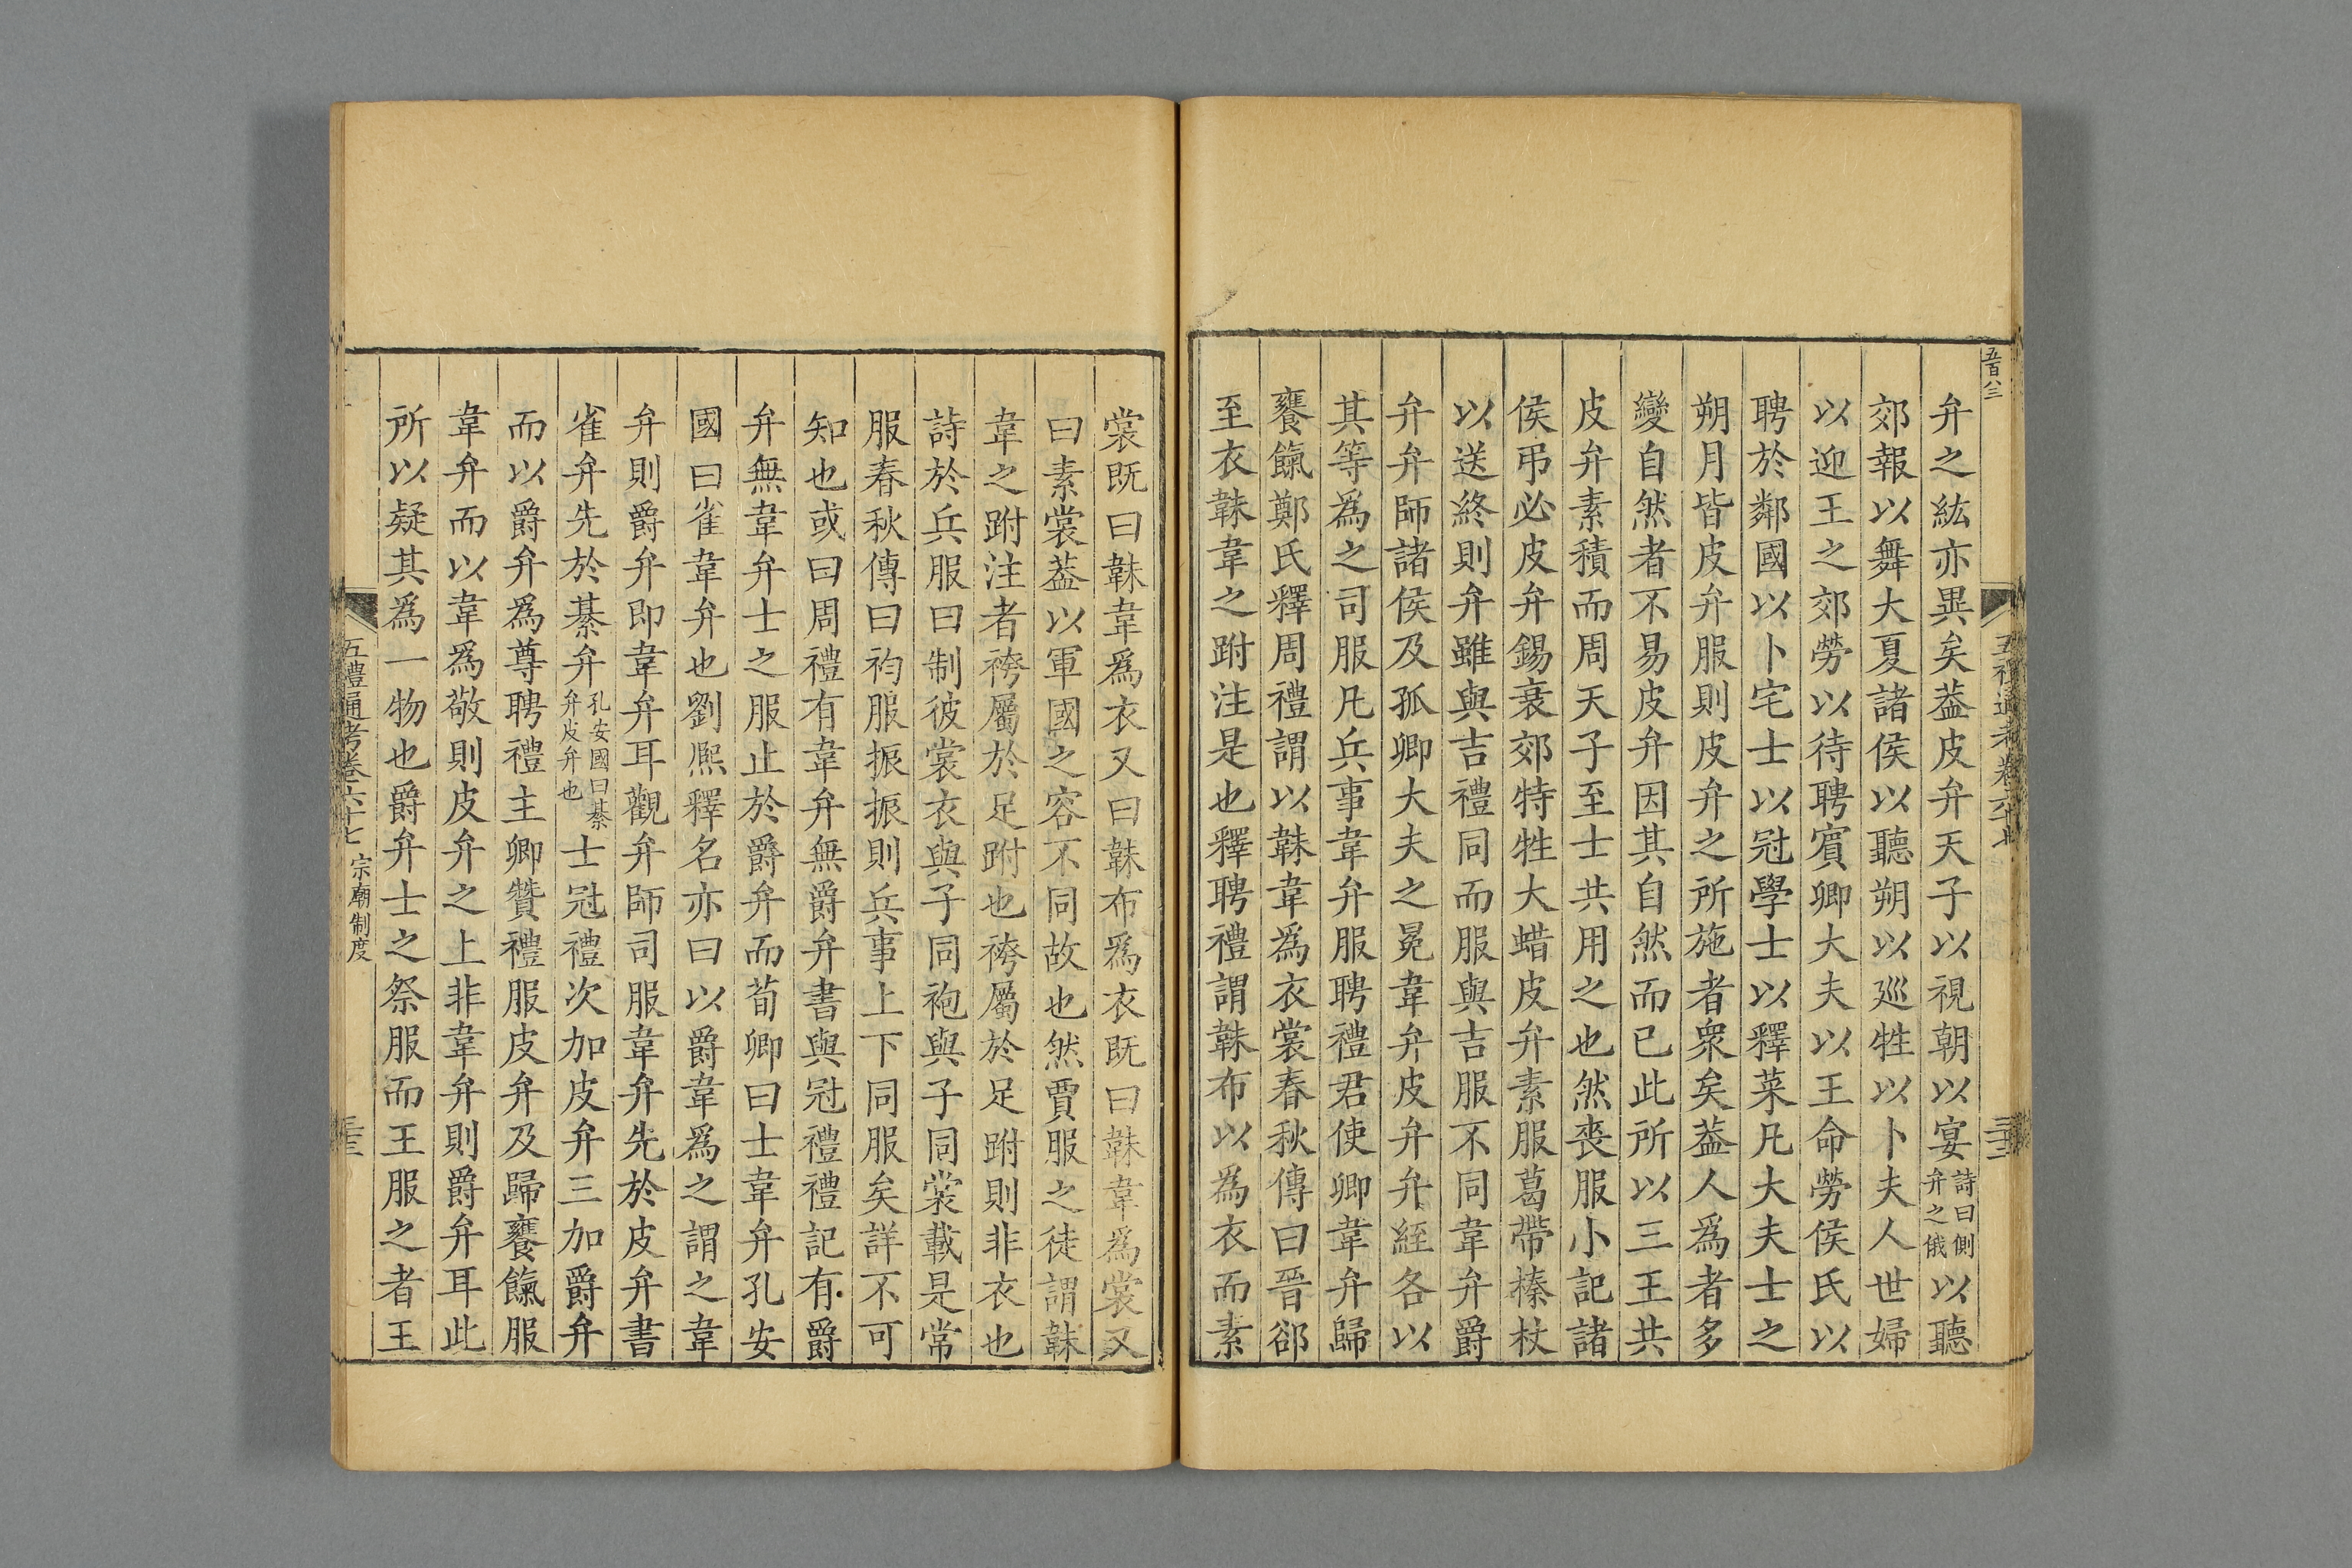 五百八三
弁之紘亦異矣葢皮弁天子以視朝以宴詩曰側弁之俄以聽
郊報以舞大夏諸侯以聽朔以廵牲以卜夫人世婦
以迎王之郊勞以待聘賓卿大夫以王命勞侯氏以
聘於鄰國以卜宅士以冠學士以釋菜凡大夫士之
朔月皆皮弁服則皮弁之所施者衆矣葢人爲者多
變自然者不易皮弁因其自然而已此所以三王共
皮弁素積而周天子至士共用之也然喪服小記諸
侯弔必皮弁錫衰郊特牲大蜡皮弁素服葛帶榛杖
以送終則弁雖與吉禮同而服與吉服不同韋弁爵
弁弁師諸侯及孤卿大夫之冕韋弁皮弁弁絰各以
其等爲之司服凡兵事韋弁服聘禮君使卿韋弁歸
饔餼鄭氏釋周禮謂以韎韋爲衣裳春秋傳曰晉郤
至衣韎韋之跗注是也釋聘禮謂韎布以爲衣而素
裳既曰韎韋爲衣又曰韎布爲衣既曰韎韋爲裳又
曰素裳葢以軍國之容不同故也然賈服之徒謂韎
韋之跗注者袴屬於足跗也袴屬於足跗則非衣也
詩於兵服曰制彼裳衣與子同袍與子同裳載是常
服春秋傳曰袀服振振則兵事上下同服矣詳不可
知也或曰周禮有韋弁無爵弁書與冠禮禮記有爵
弁無韋弁士之服止於爵弁而荀卿曰士韋弁孔安
國曰雀韋弁也劉熈釋名亦曰以爵韋爲之謂之韋
弁則爵弁即韋弁耳觀弁師司服韋弁先於皮弁書
雀弁先於綦弁孔安國曰綦弁皮弁也士冠禮次加皮弁三加爵弁
而以爵弁爲尊聘禮主卿贊禮服皮弁及歸饔餼服
韋弁而以韋爲敬則皮弁之上非韋弁則爵弁耳此
所以疑其爲一物也爵弁士之祭服而王服之者王
五禮通考卷六十七 宗廟制度